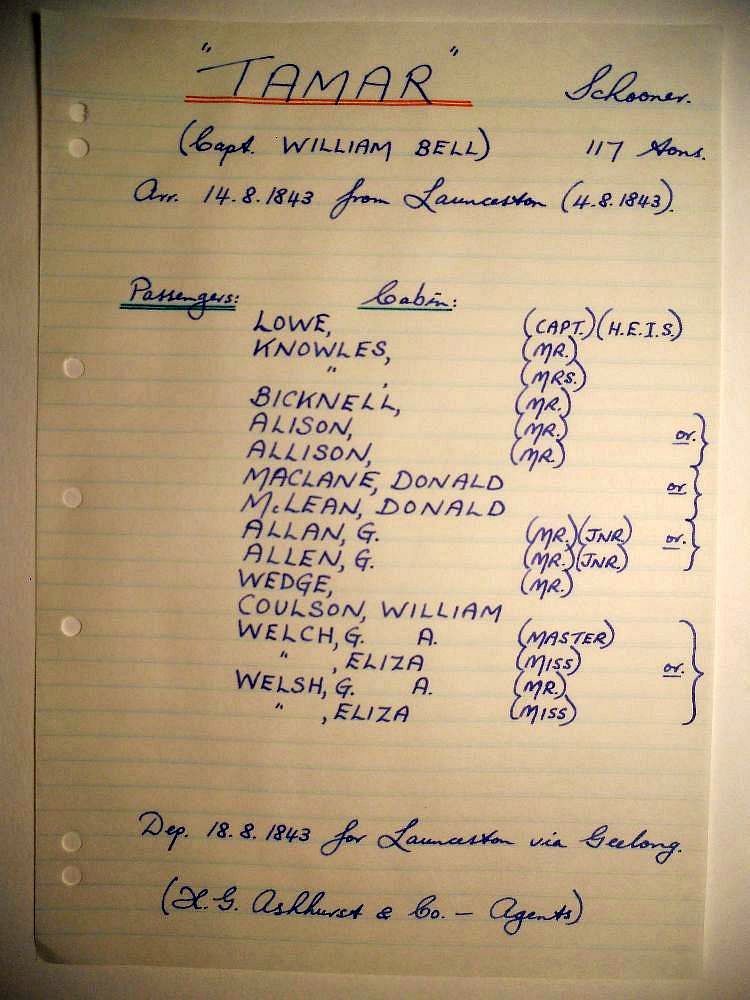 "TAMAR" Schooner.
(Capt. WILLIAM BELL) 117 Tons.
Arr. 14.8.1843 from Launceston (4.8.1843).
Passengers: Cabin:
LOWE, (CAPT.)(H.E.I.S.)
KNOWLES, (MR.)
" , (MRS.)
BICKNELL, (MR.)
ALISON, (MR.) or. }
ALLISON, (MR.)
MACLANE, DONALD or }
McLEAN, DONALD
ALLAN, G. (MR.)(JNR.) or. }
ALLEN, G. (MR.)(JNR.)
WEDGE, (MR.)
COULSON, WILLIAM
WELCH, G. A. (MASTER)
" , ELIZA (MISS) or. }
WELSH, G. A. (MR.)
" , ELIZA (MISS)
Dep. 18.8.1843 for Launceston via Geelong.
(H.G. Ashhurst & Co. – Agents)